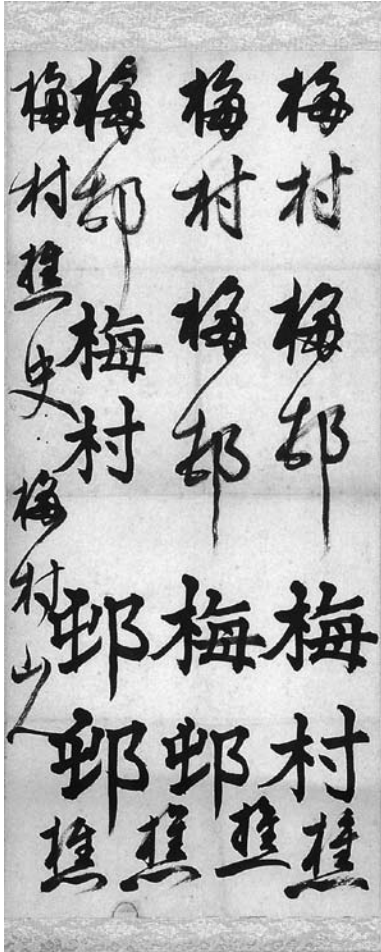 梅村梅邨梅村
梅村梅邨梅邨
梅邨梅村邨邨
樵樵樵樵
梅村樵史 梅村山人